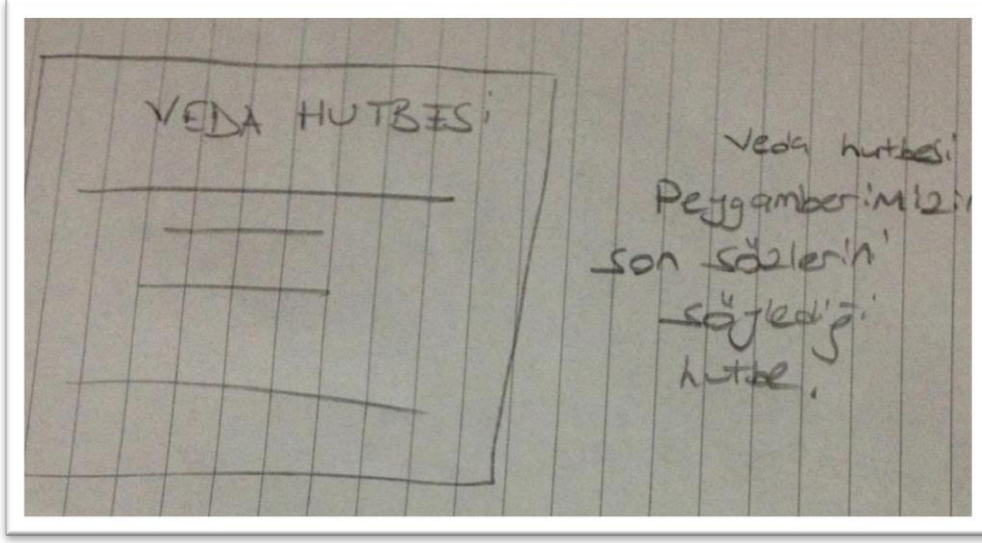 VEDA HUTBESİ
Veda hutbesi
Peygamberimizin
son sözlerini
söylediği
hutbe.